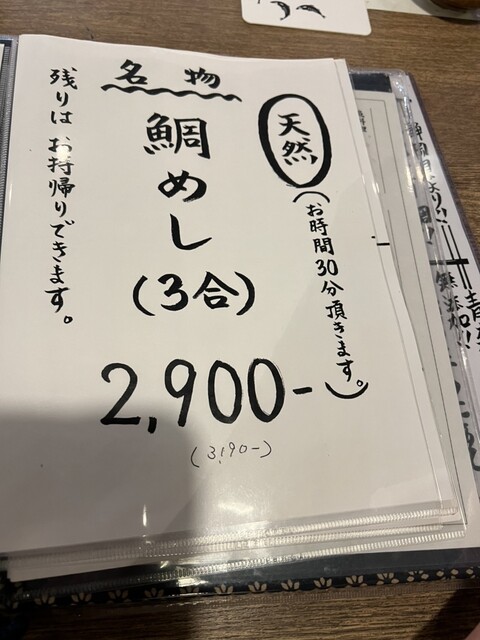 天然
(お時間30分頂きます。)
名物
鯛めし
(3合)
2,900-
(3,190-)
残りはお持帰りできます。